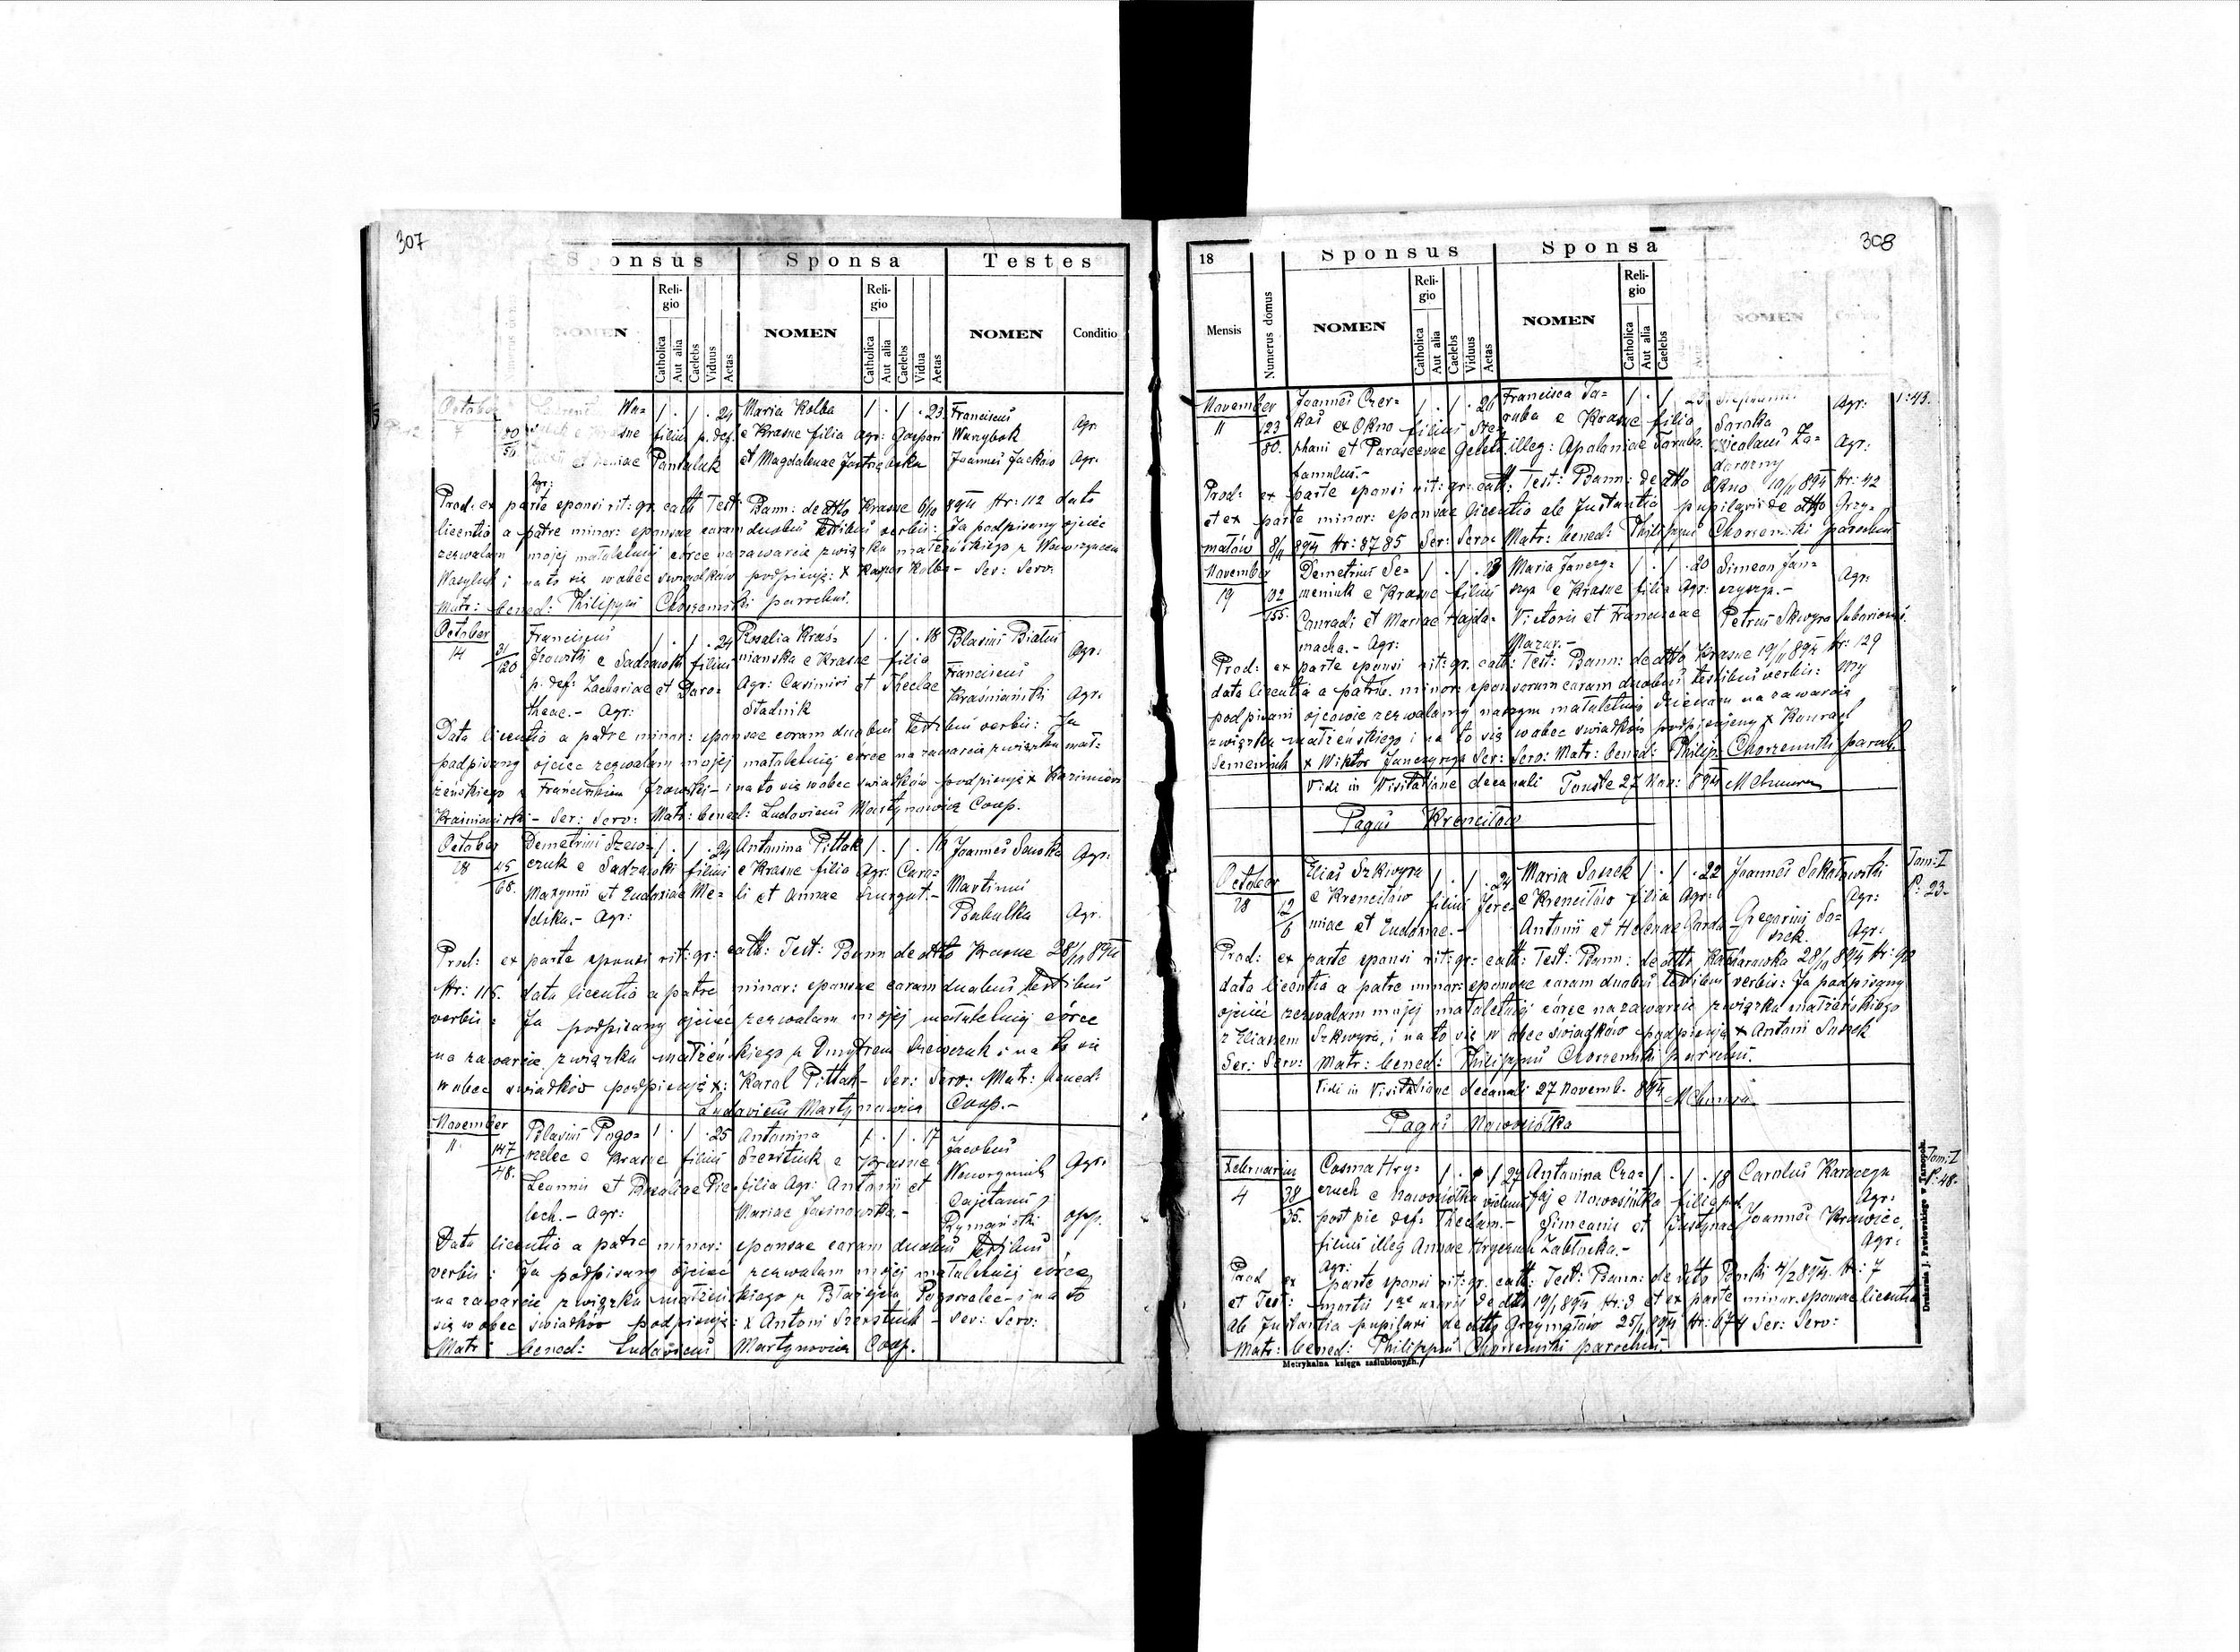 307
Sponsus Sponsa Testes
Religio Religio
NOMEN Catholica Aut alia Caelebs Viduus Aetas NOMEN Catholica Aut alia Caelebs Vidua Aetas NOMEN Conditio
October Wa= 1 . 1 . 24 Maria Kolba 1 . 1 . 23 Franciscus
7 80 filius p. def. e Krasne filia Agr: Gaspari Wasylyk Agr
56 et Xeniae Pantaluk et Magdalenae Jastrzębska Joannes Jacków Agr.
Agr:
Prod: ex parte sponsi rit: gr: cath Test: Bann: de dtto Krasne 6/10 894 Nr: 112 data
licentia a patre minor: sponsae coram duobus testibus verbis: Ja podpisany ojciec
zezwalam mojej małoletniej córce na zawarcie związku małżeńskiego z Wawrzyńcem
Wasyluk i na to się wobec świadków podpisuję: X Kasper Kolba - Ser: Serv:
Matr: bened: Philippus Chorzemski parochus.
October Franciscus 1 . 1 . 24 Rosalia Kraś= 1 . 1 . 18 Blasius Białuś
14 31 Jzowski e Sadzawki filius niańska e Krasne filia Agr:
120 p. def: Zachariae et Doro= Agr: Casimiri et Theclae Franciscus
theae. - Agr: Stadnik Kraśniański Agr.
Data licentia a patre minor: sponsae coram duobus testibus verbis: Ja
podpisany ojciec zezwalam mojej małoletniej córce na zawarcie związku mał=
żeńskiego z Franciszkiem Jzowski - i na to się wobec świadków podpisuję X Kazimierz
Kraśniański - Ser: Serv: Matr: bened: Ludovicus Martynowicz Coop.
October Demetrius Szew= 1 . 1 . 24 Antonina Pittak 1 . 1 . 16 Joannes Sawka Agr:
28 45 czuk e Sadzawki filius e Krasne filia Agr: Caro=
68. Maxymi et Eudoxiae Me= li et Annae Szurgut. - Martinus
lska. - Agr: Babulka Agr.
Prod: ex parte sponsi rit: gr: cath: Test: Bann de dtto Krasne 28/10 894
Nr: 115. data licentia a patre minor: sponsae coram duobus testibus
verbis: Ja podpisany ojciec zezwalam mojej małoletniej córce
na zawarcie związku małżeńskiego z Dmytrem Szewczuk i na to się
wobec świadków podpisuję X: Karol Pittak - Ser: Serv: Matr: bened:
Ludovicus Martynowicz Coop. -
November Blasius Pogo= 1 . 1 . 25 Antonina 1 . 1 . 17 Jacobus
11 147 rzelec e Krasne filius Szerstiuk e Krasne Agr.
48. Leonis et Rosaliae Pie= filia Agr: Antonii et Cajetanus
lech. - Agr: Mariae Jasinowska. - Rymański opp.
Data licentia a patre minor: sponsae coram duobus testibus
verbis: Ja podpisany ojciec zezwalam mojej małoletniej córce
na zawarcie związku małżeńskiego z Błażejem Pogorzelec - i na to
się wobec świadków podpisuję: X Antoni Szerstiuk - Ser: Serv:
Matr: bened: Ludovicus Martynowicz Coop.
308
18 Sponsus Sponsa
Religio Religio
Mensis Numerus domus NOMEN Catholica Aut alia Caelebs Viduus Aetas NOMEN Catholica Aut alia Caelebs NOMEN
November Joannes Czer= 1 . 1 . 26 Francisca Ta= 1 . 1 23 Agr: 1:43.
11 123 kas ex Okno filius Ste= raba e Krasne filia Soroka
80. phani et Parascevae Geleta illeg: Apoloniae Taraba. Nicolaus Za= Agr:
famulus. -
Prod: ex parte sponsi rit: gr: cath: Test: Bann: de dtto Okno 10/11 894 Nr: 42
et ex parte minor: sponsae licentia ab Instantia pupilari de dtto Grzy=
małów 8/11 894 Nr: 8785 Ser: Serv: Matr: bened: Philippus Chorzemski parochus
November Demetrius Se= 1 . 1 . 23 Maria Janczy= 1 . 1 . 20 Simeon Jan= Agr:
19 102 meniuk e Krasne filius szyn e Krasne filia Agr: czyszyn. -
155. Conradi et Mariae Hajda= Victoris et Franciscae Petrus Skwyra
macha. - Agr: Mazur. -
Prod: ex parte sponsi rit: gr. cath: Test: Bann: de dtto Krasne 19/11 894 Nr: 129
data licentia a patrib. minor: sponsorum coram duobus testibus verbis: My
podpisani ojcowie zezwalamy naszym małoletnim dzieciom na zawarcie
związku małżeńskiego i na to się wobec świadków podpisujemy X Konrad
Semeniuk X Wiktor Janczyszyn Ser: Serv: Matr: bened: Philip: Chorzemski paroch
Vidi in Visitatione decanali Touste 27 Nov: 894
Pagus Krenciłów
October Elias Szkwyra 1 . 1 . 24 Maria Sossek 1 . 1 . 22 Joannes Sokołowski Tom: I
28 12 e Krenciłów filius Jere= e Krenciłów filia Agr: Agr: P: 23.
6 miae et Eudoxiae. - Antonii et Helenae Gregorius So= Agr:
ssek.
Prod: ex parte sponsi rit: gr: cath: Test: Bann: de dtto 28/10 894 Nr: 90
data licentia a patre minor: sponsae coram duobus testibus verbis: Ja podpisany
ojciec zezwalam mojej małoletniej córce na zawarcie związku małżeńskiego
z Eliaszem Szkwyra, i na to się wobec świadków podpisuję X Antoni Sossek
Ser: Serv: Matr: bened: Philippus Chorzemski parochus.
Vidi in Visitatione decanali 27 Novemb. 894
Pagus Nowosiółka
Februarius Cosma Hry= 1 . . 1 27 Antonina Cza= 1 . 1 . 18 Carolus Karaczyn Tom: I
4 38 czuch e Nowosiółka viduus jaj e Nowosiółka filia p.d. Agr: P: 48.
35. post pie def: Theclam. - Simeonis et Justynae Joannes Krawiec,
filius illeg Annae Hryczuch Zabłocka. - Agr:
Agr:
Prod ex parte sponsi rit: gr. cath: Test: Bann: de dtto 4/2 894. Nr: 7
et Test: mortis 1ae uxoris de dtto 19/1 894 Nr: 3 et ex parte minor. sponsae licentia
ab Instantia pupilari de dtto Grzymałów 25/1 894 Nr: 674 Ser: Serv:
Matr: bened: Philippus Chorzemski parochus.
Metrykalna księga zaślubionych.
Drukarnia J. Pawłowskiego w Tarnopolu.